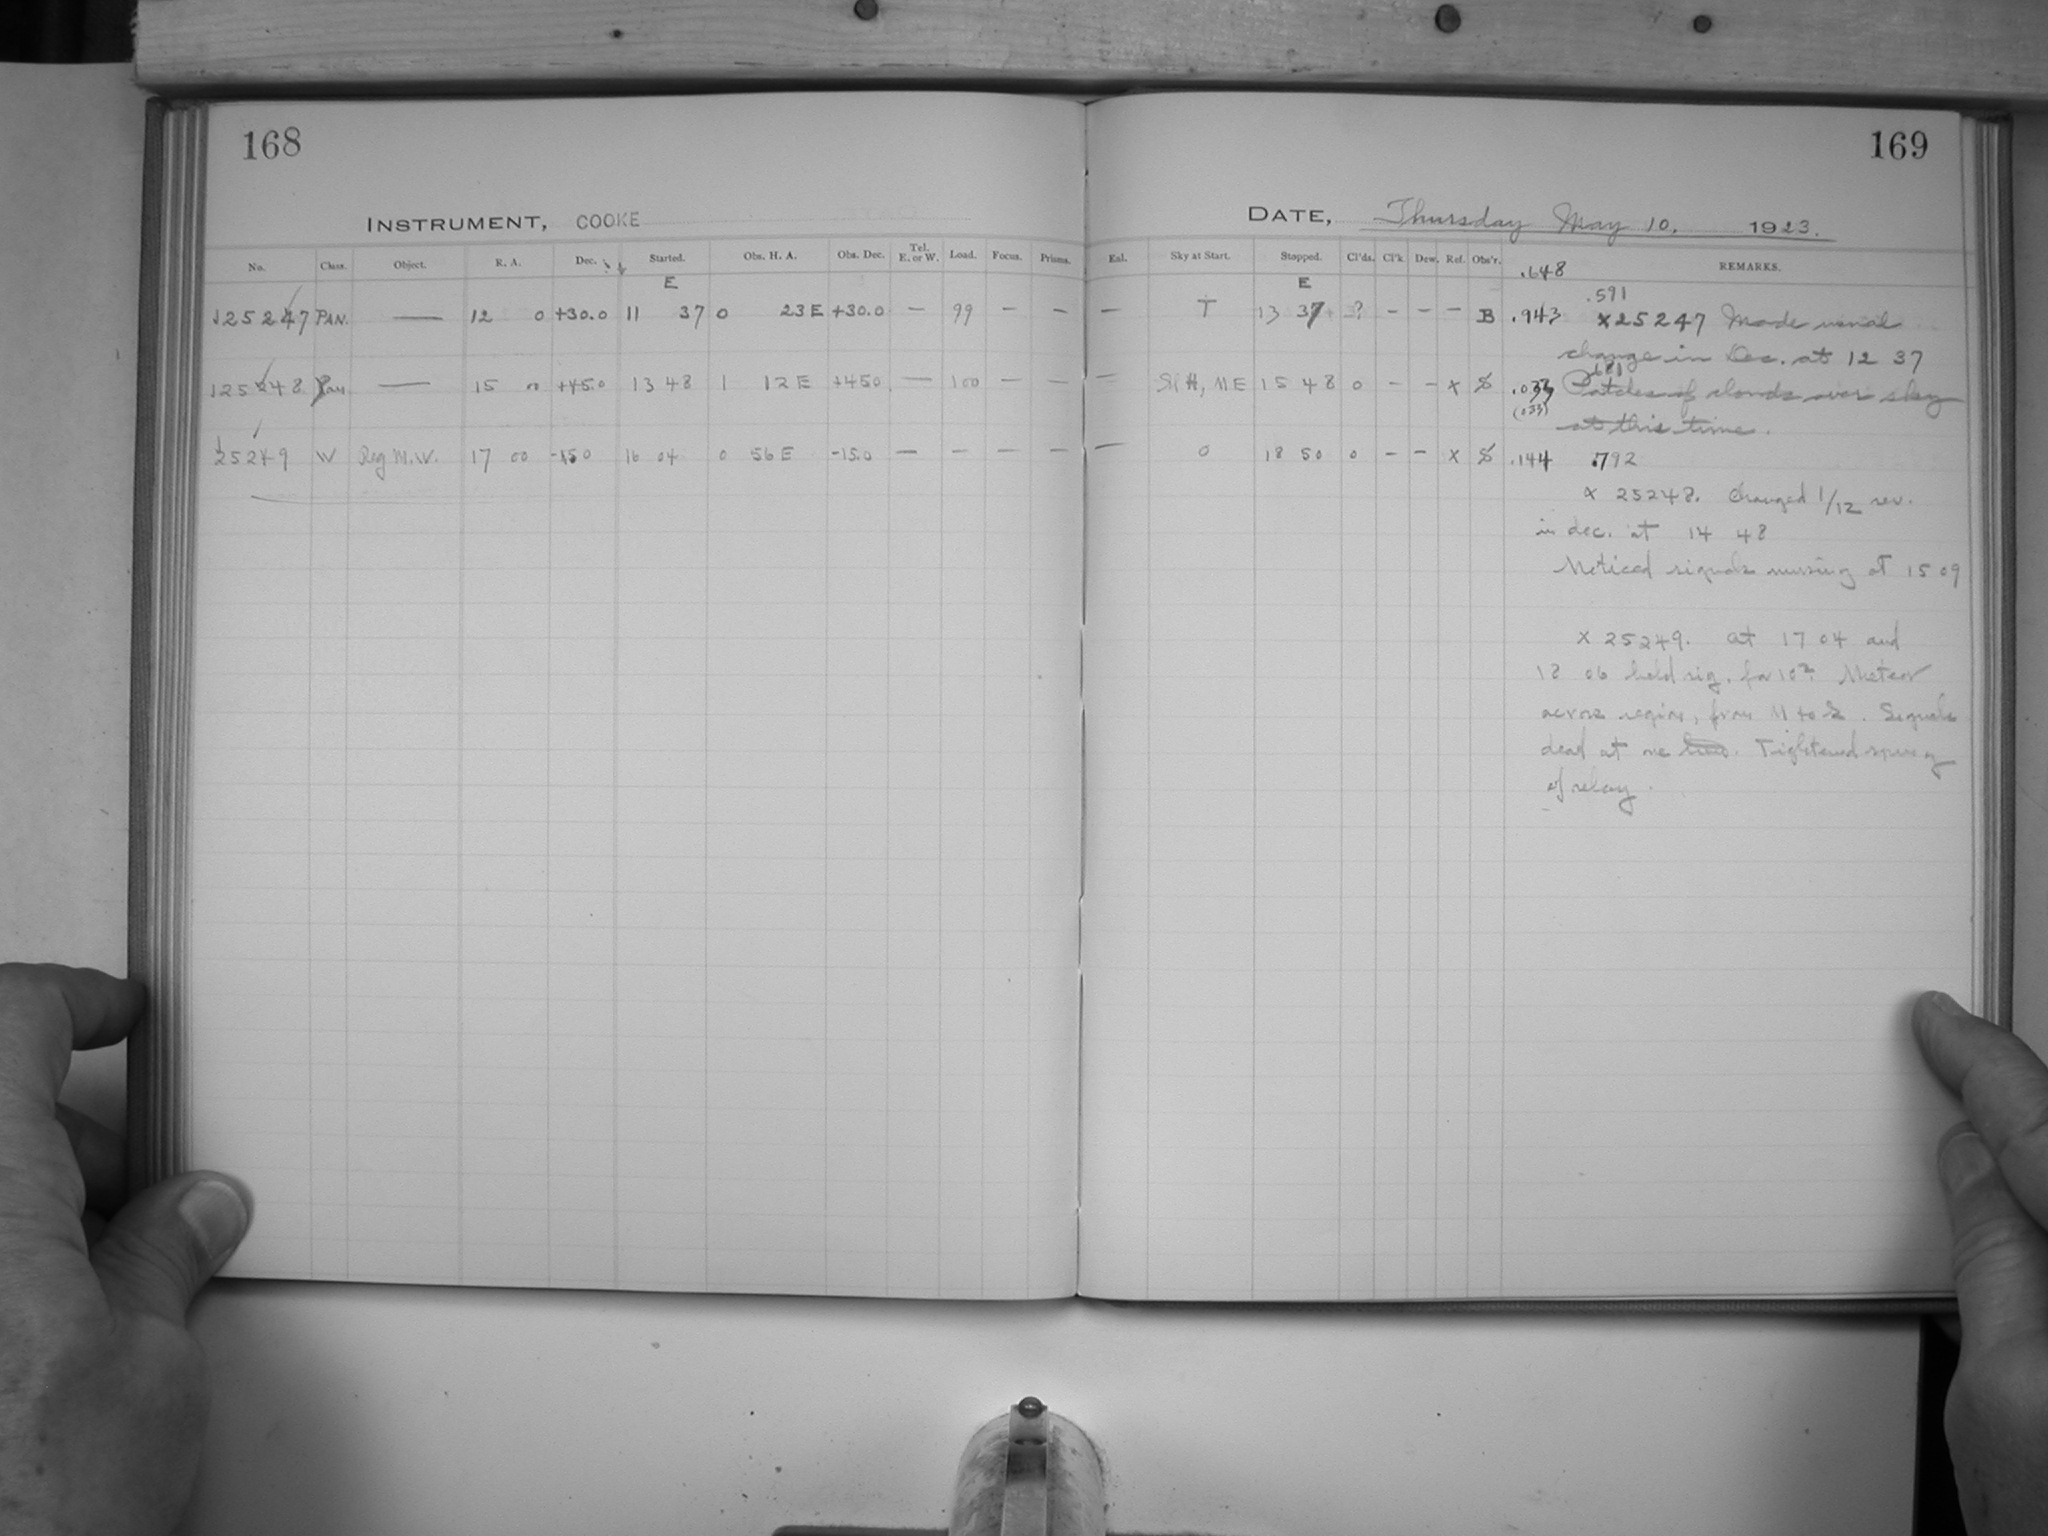 168
169
INSTRUMENT, COOKE
DATE, Thursday May 10. 1923.
No. Class. Object. R. A. Dec. Started. Obs. H. A. Obs. Dec. Tel. E. or W. Load. Focus. Prisms. Enl. Sky at Start. Stopped. Cl'ds. Cl'k Dew. Ref. Obs'r. REMARKS.
.648
E E .591
25247 PAN. — 12 0 +30.0 11 37 0 23 E +30.0 — 99 — — — T 13 37 ? — — — B .943 x25247 Made usual
change in Dec. at 12 37
.681
25248 Pan — 15 00 +45.0 13 48 1 12 E +450 — 100 — — — Sl H, NE 15 48 0 — — x S .033 Patches of clouds over sky
(033) at this time.
25249 W Reg M.W. 17 00 -15 0 16 04 0 56 E -15.0 — — — — — 0 18 50 0 — — x S .144 .792
x 25248. Changed 1/12 rev.
in dec. at 14 48
Noticed signals missing at 15 09
x 25249. at 17 04 and
18 06 held sig. for 10s. Meteor
across region, from N to S. Signals
dead at one. Tightened spring
of relay.